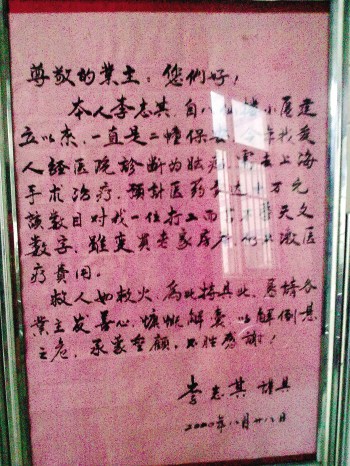 尊敬的業主：您們好！
本人李志其，自八 小區建
立以來，一直是二幢保 今年我爱
人经医院診断为 需去上海
手术治疗，預計医药 达十万元
該数目对我一位打工而言 天文
数字，雖变賣老家房 缴医
疗費用。
救人如救火，為此特具此，恳請各
業主发善心，慷慨解囊以解倒悬
之危，承蒙垂顧，不胜感謝！
李志其 謹具
2020年八月廿八日